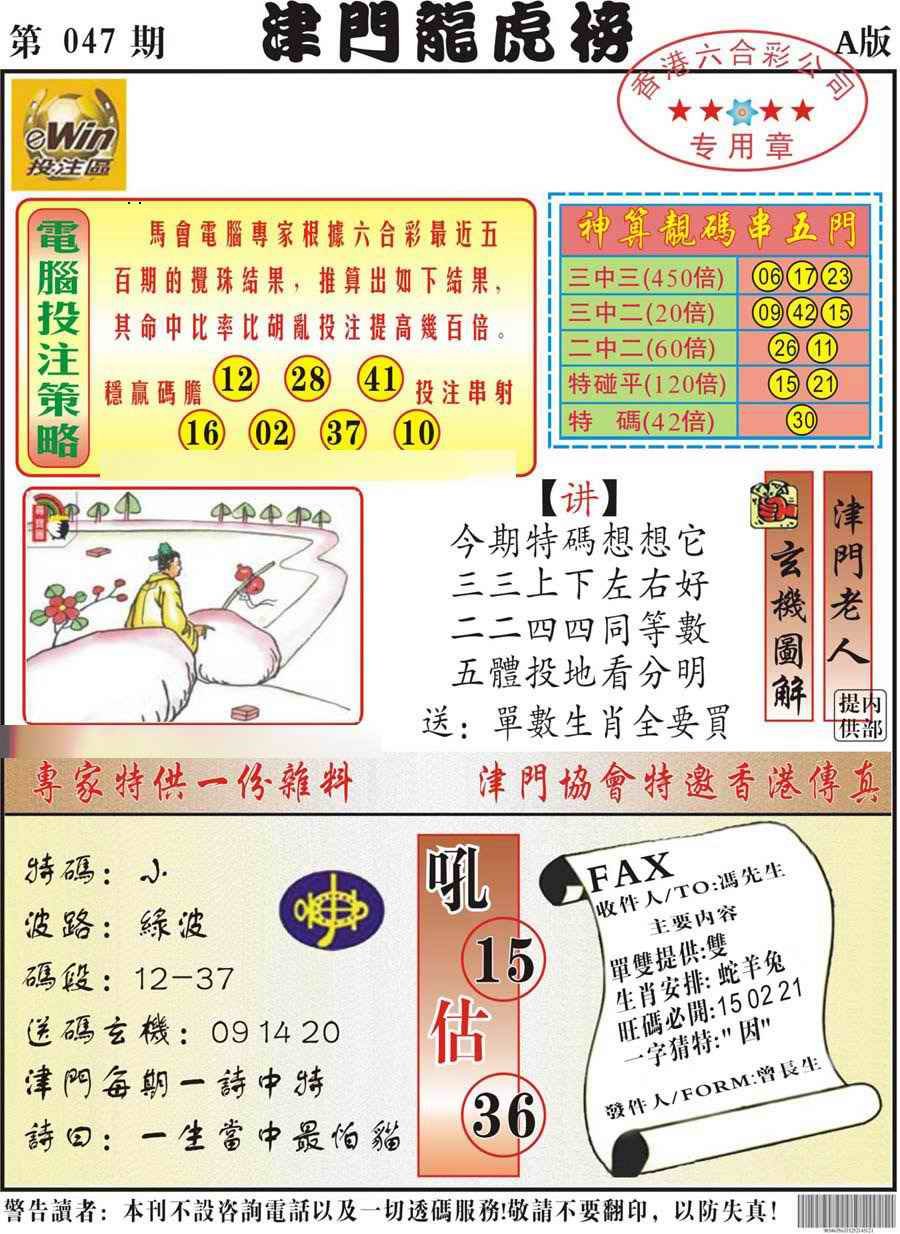 第 047 期
津門龍虎榜
A版
香港六合彩公司
专用章
eWin
投注區
電腦投注策略
馬會電腦專家根據六合彩最近五
百期的攪珠結果，推算出如下結果，
其命中比率比胡亂投注提高幾百倍。
穩贏碼膽 12 28 41 投注串射
16 02 37 10
神算靚碼串五門
三中三(450倍) 06 17 23
三中二(20倍) 09 42 15
二中二(60倍) 26 11
特碰平(120倍) 15 21
特 碼(42倍) 30
尋寶圖
【讲】
今期特碼想想它
三三上下左右好
二二四四同等數
五體投地看分明
送：單數生肖全要買
玄機圖解
津門老人
内部提供
專家特供一份雜料
津門協會特邀香港傳真
特碼：小
波路：綠波
碼段：12－37
送碼玄機：09 14 20
津門每期一詩中特
詩曰：一生當中最怕貓
吼
15
估
36
FAX
收件人/TO:馮先生
主要内容
單雙提供:雙
生肖安排:蛇羊兔
旺碼必開:15 02 21
一字猜特:"因"
發件人/FORM:曾長生
警告讀者：本刊不設咨詢電話以及一切透碼服務!敬請不要翻印，以防失真!